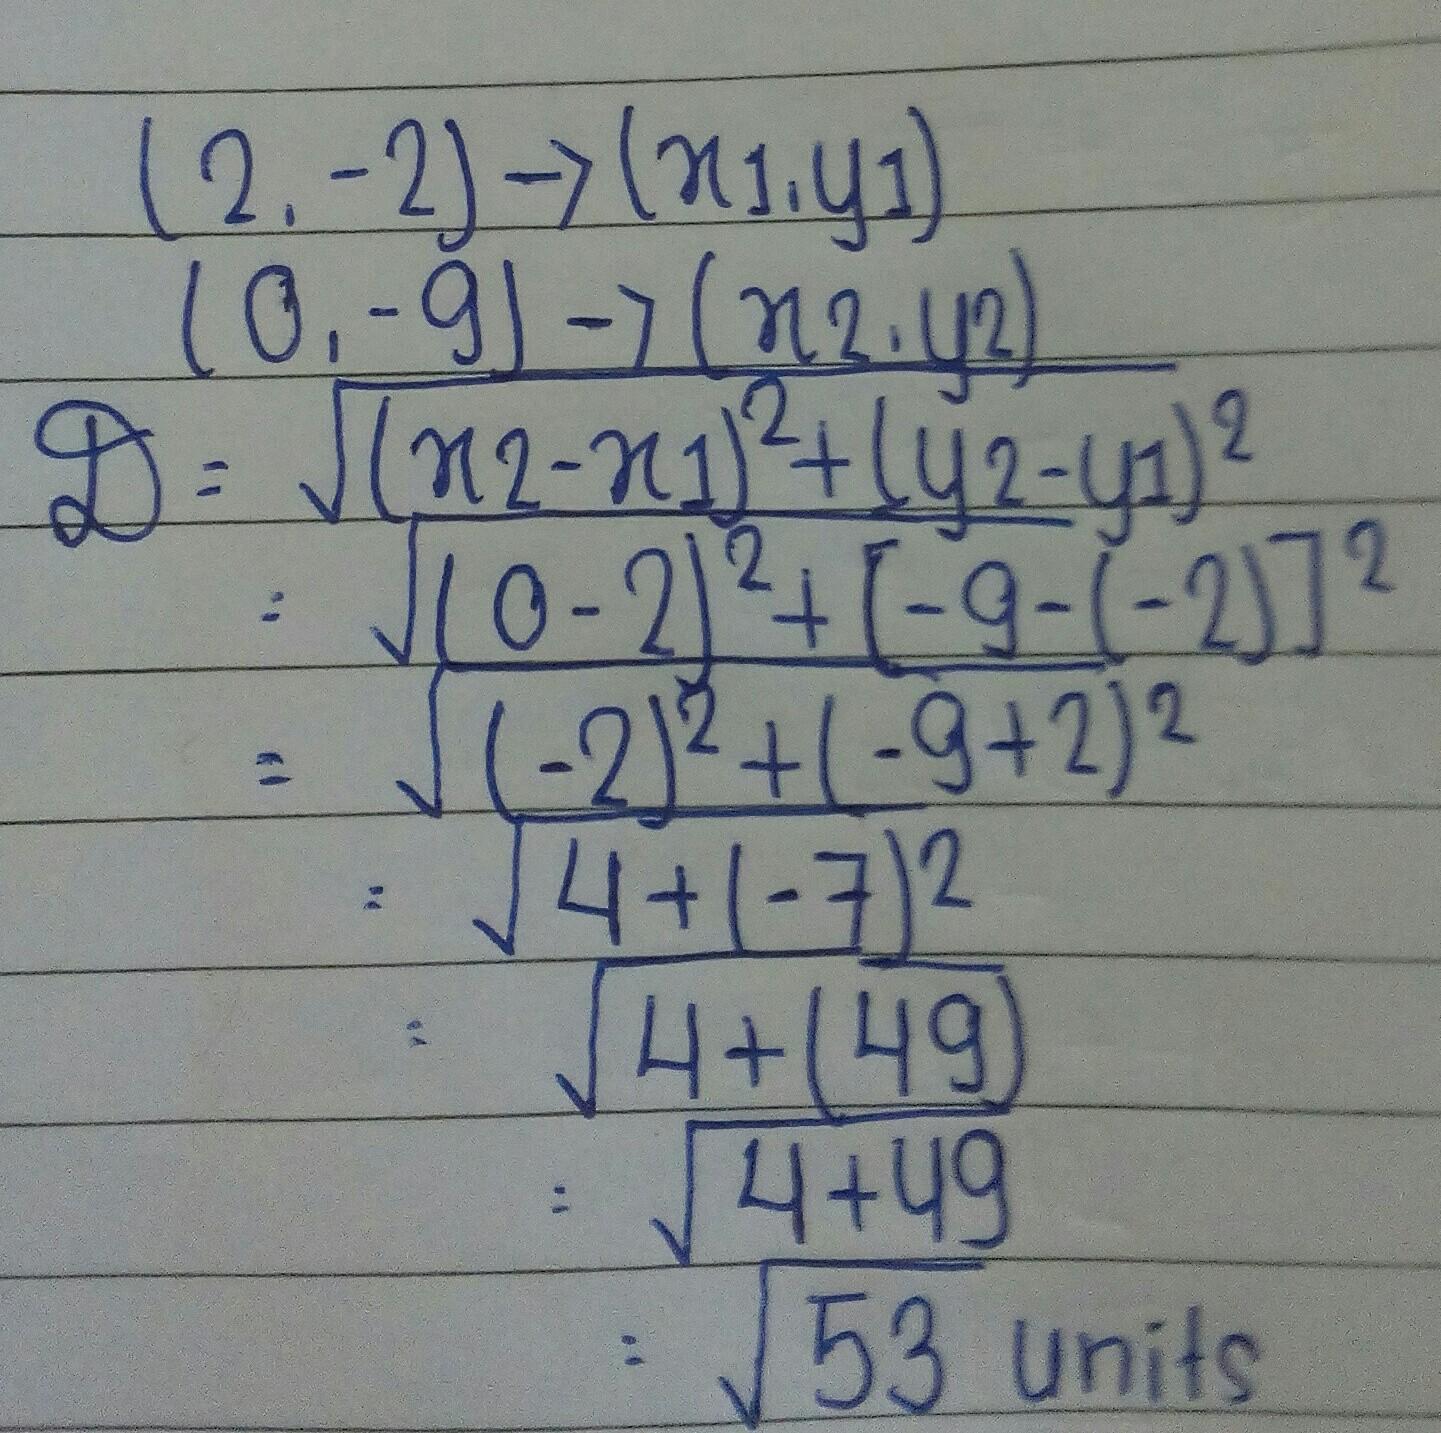 (2, -2) -> (x1, y1)
(0, -9) -> (x2, y2)
D = √(x2-x1)²+(y2-y1)²
= √(0-2)²+[-9-(-2)]²
= √(-2)²+(-9+2)²
= √4+(-7)²
= √4+(49)
= √4+49
= √53 units